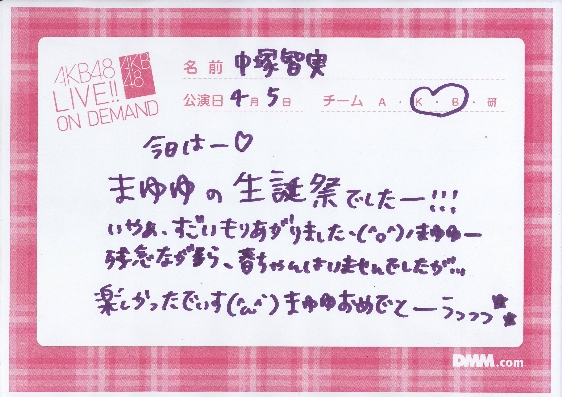 AKB48
LIVE!!
ON DEMAND
AKB
48
名前 中塚智実
公演日 4月5日 チーム A・K・B・研
今日はー♡
まゆゆの生誕祭でしたー!!!
いやぁ、すごいもりあがりました、(^o^)ノまゆゆー
残念ながら、春ちゃんはいませんでしたが、、、
楽しかったでいす(^ω^)まゆゆおめでとーうっっっ
DMM.com